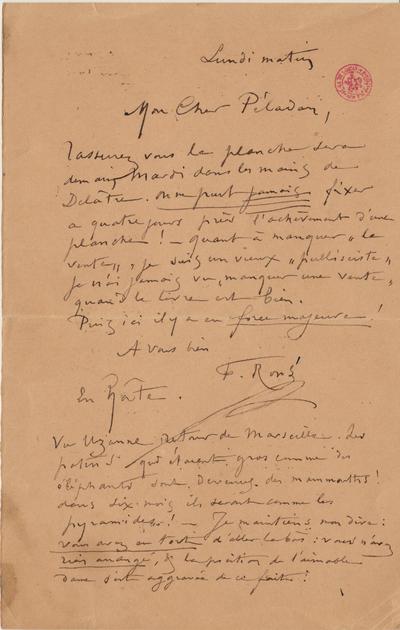 Lundi matin
Mon Cher Péladan,
Rassurez vous la planche sera
demain Mardi dans les mains de
Delâtre. on ne peut jamais fixer
a quatre jours près l'achèvement d'une
planche ! – quant à manquer "la
vente", je suis un vieux "publiciste"
je n'ai jamais vu "manquer une vente"
quand le livre est bien.
Puis ici il y a eu force majeure !
A vous bien
F. Rops
En hâte.
Vu Uzanne retour de Marseille. Les
potins qui étaient gros comme des
éléphants sont devenus des mammouths !
dans six mois ils seront comme les
pyramides ! – Je maintiens mon dire :
vous avez eu tort d'aller là bas : vous n'avez
rien arrangé, & la position de l'aimable
dame s'est aggravée de ce fait !